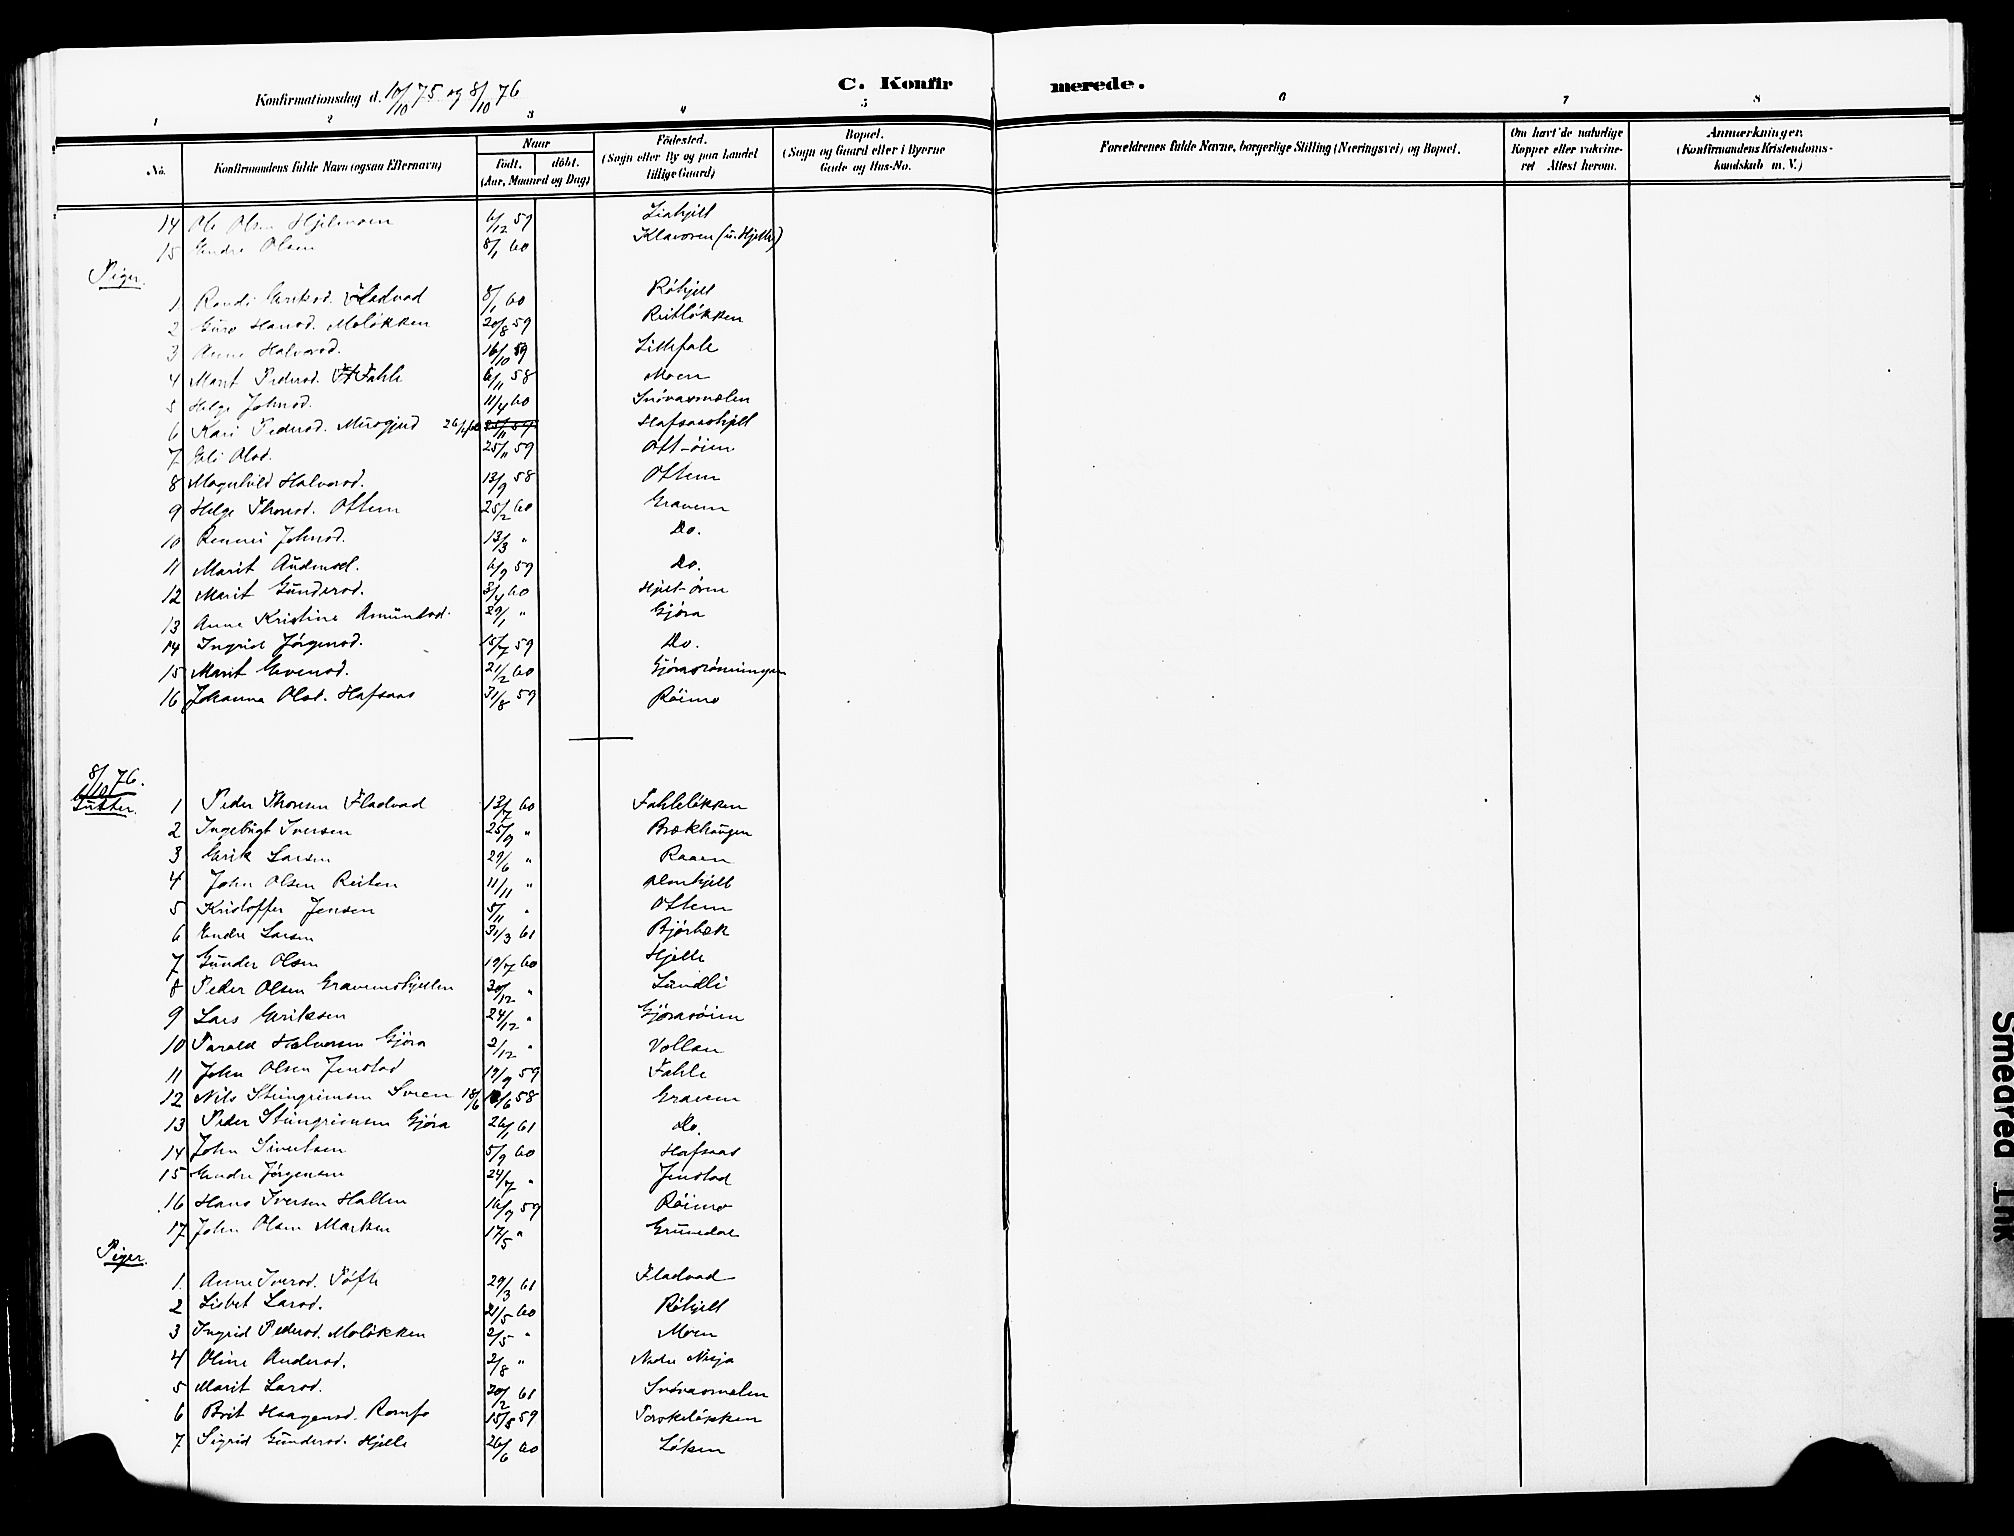 C. Konfirmerede.
Konfirmationsdag d. 10/10 75 og 8/10 76
1 2 3 4 5 6 7 8
No. Konfirmandens fulde Navn (ogsaa Efternavn) Naar født. døbt. (Aar, Maaned og Dag) Fødested. (Sogn eller By og paa Landet tillige Gaard) Bopæl. (Sogn og Gaard eller i Byerne Gade og Hus-No. Forældrenes fulde Navne, borgerlige Stilling (Næringsvei) og Bopæl. Om havt de naturlige Kopper eller vakcineret Attest herom. Anmærkninger. (Konfirmandens Kristendomskundskab m. V.)
14 Ole Olsen Hjelmoen 6/12 59 Liahjell
15 Endre Olsen 8/1 60 Klavoren (u. Hjelle)
Piger.
1 Randi Eriksd. Fladvad 8/1 60 Røhjell
2 Guro Hansd. Moløkken 20/8 59 Reitløkken
3 Anne Halvorsd. 16/10 59 Lillefale
4 Marit Pedersd. Fahle 6/11 58 Moen
5 Helge Johnsd. 11/4 60 Snøvasmelen
6 Kari Pedersd. Musgjerd 26/1 60 Hafsaashjell
7 Eli Olsd. 25/11 59 Ott-øien
8 Magnhild Halvorsd. 13/9 58 Ottem
9 Helge Thoresd. Ottem 25/2 60 Gravem
10 Rennei Johnsd. 13/3 " Do.
11 Marit Audensd. 6/9 59 Do.
12 Marit Gundersd. 3/4 60 Hjell-øren
13 Anne Kristine Amundsd. 29/1 " Gjøra
14 Ingrid Jørgensd. 15/7 59 Do.
15 Marit Evensd. 21/2 60 Gjørasrønningen
16 Johanna Olsd. Hafsaas 31/8 59 Røimo
8/10 76.
Gutter.
1 Peder Thoresen Fladvad 13/7 60 Fahleløkken
2 Ingebrigt Iversen 25/9 " Brækhaugen
3 Erik Larsen 29/6 " Raaen
4 John Olsen Reiten 11/11 " Almhjell
5 Kristoffer Jensen 5/11 " Ottem
6 Endre Larsen 31/3 61 Bjørbæk
7 Gunder Olsen 19/7 60 Hjelle
8 Peder Olsen Gravemshjellen 30/12 " Lundli
9 Lars Eriksen 24/12 " Gjørasøien
10 Harald Halvorsen Gjøra 2/12 " Vollan
11 John Olsen Jenstad 19/9 59 Fahle
12 Nils Steingrimsen Svren 18/6 58 Gravem
13 Peder Steingrimsen Gjøra 26/1 61 Do.
14 John Sivertsen 5/9 60 Hafsaas
15 Endre Jørgensen 24/7 " Jenstad
16 Hans Iversen Hallen 16/9 59 Røimo
17 John Olsen Marken 17/5 " Grunedal
Piger.
1. Anne Iversd. Tøfte 29/3 61 Fladvad
2 Lisbet Larsd. 21/5 60 Røhjell
3 Ingrid Pedersd. Moløkken 2/5 " Moen
4 Oline Andersd. 2/8 " Nedre Nisja
5 Marit Larsd. 20/2 61 Snøvasmelen
6 Brit Haagensd. Romfo 15/8 59 Torskeløkken
7 Sigrid Gundersd. Hjelle 26/6 60 Løken
Smedreda ink